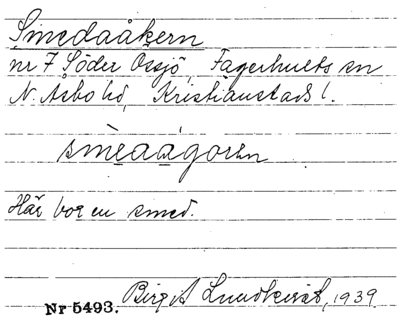 Smedaåkern
nr 7 Söder Ossjö, Fagerhults sn
N. Åsbo hd, Kristianstads l.
smèaágorn
Här bor en smed.
Birgit Lundkvist, 1939
Nr 5493.